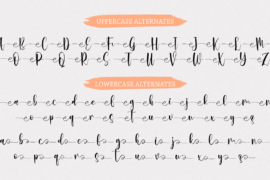 UPPERCASE ALTERNATES
A B C D E F G H I J K L M
N O P Q R S T U V W X Y Z
LOWERCASE ALTERNATES
a b c d e f g h i j k l m n
o p q r s t u v w x y z
a b c d e f g h i j k l m n
o p q r s t u v w x y z